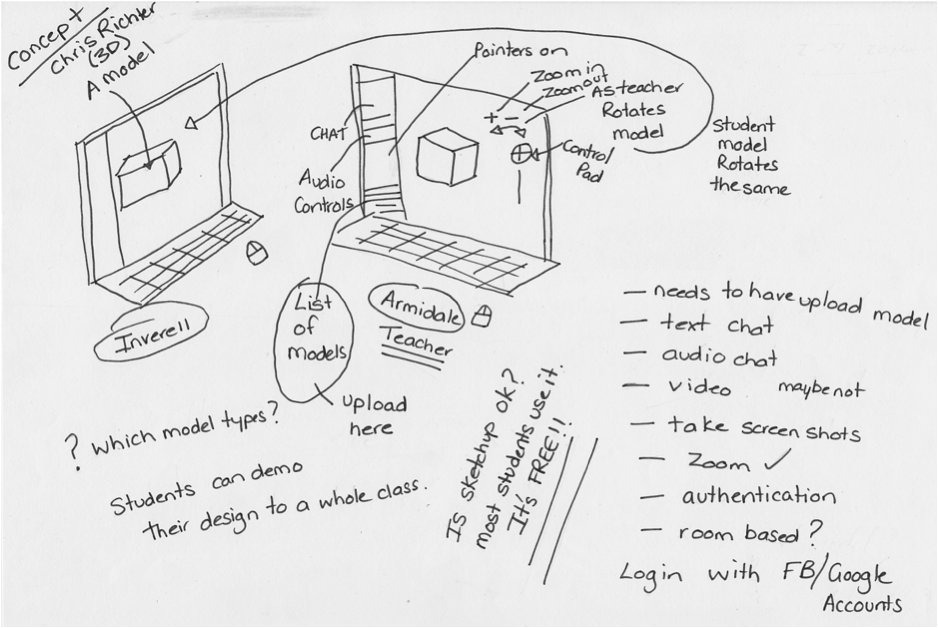 Concept
Chris Richter
(3D)
A model
Pointers on
Zoom in
Zoom out
As teacher
Rotates
model
+ -
Control
Pad
CHAT
Audio
Controls
Student
model
Rotates
the same
Inverell
List
of
models
upload
here
Armidale
Teacher
? which model types?
Students can demo
their design to a whole class.
Is sketchup ok?
most students use it.
It's FREE!!
— needs to have upload model
— text chat
— audio chat
— video maybe not
— take screen shots
— Zoom ✓
— authentication
— room based?
Login with FB/Google
Accounts